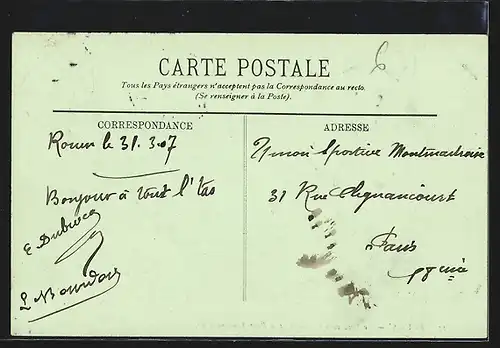 6
CARTE POSTALE
Tous les Pays étrangers n'acceptent pas la Correspondance au recto.
(Se renseigner à la Poste).
CORRESPONDANCE
ADRESSE
Rouen le 31.3.07
Bonjour à tout l'
Union Sportive Montmartroise
31 Rue Clignancourt
Paris
18ème